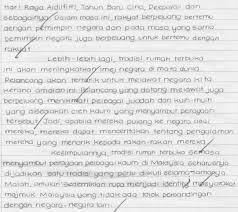 Hari Raya Aidilfitri, Tahun Baru Cina, Deepavali dan
sebagainya. Dalam masa ini, rakyat berpeluang bertemu
dengan pemimpin negara dan pada masa yang sama
pemimpin negara juga berpeluang untuk bertemu dengan
rakyat.
Lebih-lebih lagi, tradisi rumah terbuka
ini akan meningkatkan imej negara di mata dunia.
Pelancong akan tertarik untuk melawat negara kita
kerana amalan ini. Pelancong yang datang melawat juga
berpeluang menikmati pelbagai juadah dan kuih-muih
yang disediakan oleh kaum yang menyambut perayaan
tersebut. Jadi, apabila mereka pulang ke negara
mereka, mereka dapat menceritakan tentang pengalaman
mereka yang menarik kepada rakan-rakan mereka.
Kesimpulannya, tradisi rumah terbuka semasa
menyambut perayaan pelbagai kaum di Malaysia seharusnya
dijadikan satu tradisi yang perlu diikuti
Malah, amalan sedemikian rupa menjadi identiti masyarakat
majmuk Malaysia yang tidak ada tolok perbandingan
dengan negara-negara lain.